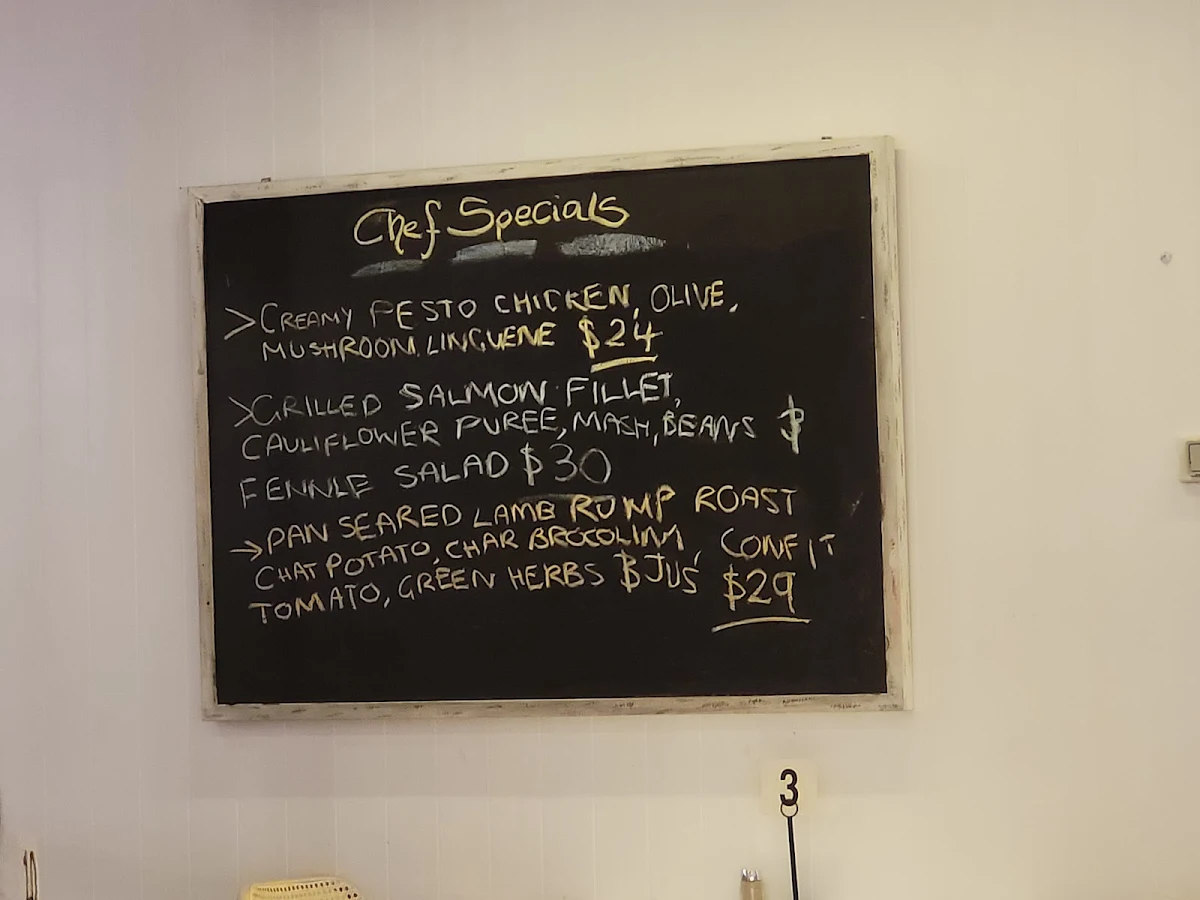 Chef Specials
>CREAMY PESTO CHICKEN, OLIVE,
MUSHROOM, LINGUENE $24
>GRILLED SALMON FILLET,
CAULIFLOWER PUREE, MASH, BEANS &
FENNLE SALAD $30
→PAN SEARED LAMB RUMP ROAST
CHAT POTATO, CHAR BROCOLINI, CONFIT
TOMATO, GREEN HERBS & JUS $29
3